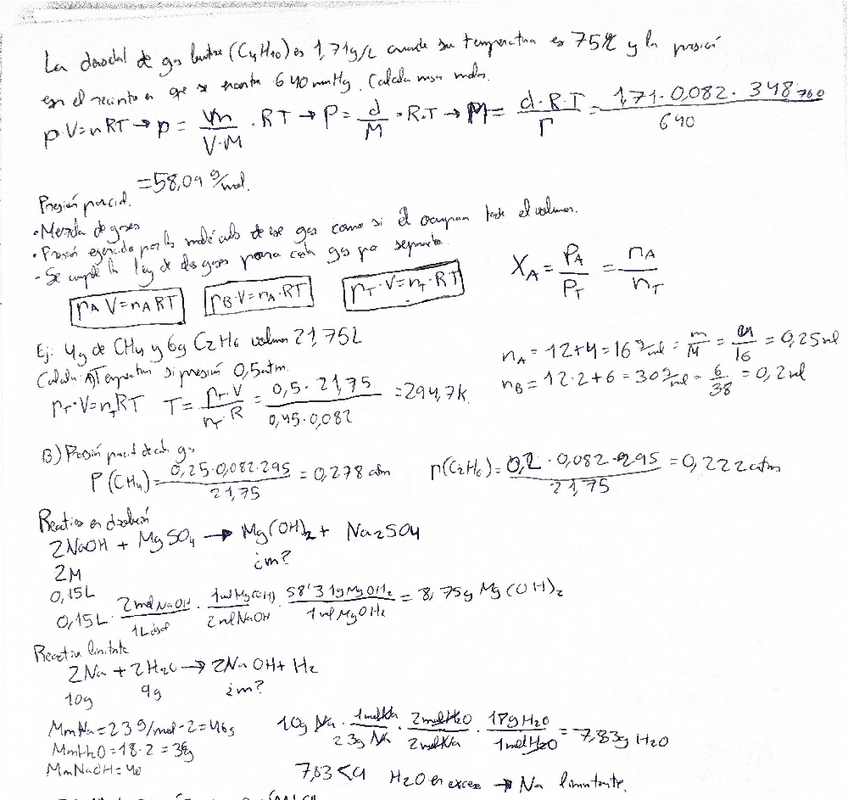 La densidad de gas butano (C4H10) es 1,71g/L cuando su temperatura es 75ºC y la presión
en el recinto en que se encuentra 640 mmHg. Calcula masa molar.
p·V=nRT → p = m/V·M · RT → P = d/M · R·T → M = d·R·T/P = 1,71·0,082·348 760/640
=58,09 g/mol.
Presión parcial.
·Mezcla de gases
·Presión ejercida por las moléculas de ese gas como si él ocupara todo el volumen.
-Se cumple la ley de los gases para cada gas por separado
PA V=nA RT PB·V=nA·RT PT·V=nT·RT XA = PA/PT = nA/nT
Ej: 4g de CH4 y 6g C2H6 volumen 21,75L
Calcula: A) Temperatura si presión 0,5atm.
nA = 12+4=16 g/mol = m/M = 4/16 = 0,25ml
PT·V=nTRT T= PT·V/nT·R = 0,5·21,75/0,45·0,082 =294,7k
nB=12·2+6=30g/ml = 6/38 = 0,2ml
B) Presión parcial de cada gas
P(CH4)= 0,25·0,082·295/21,75 = 0,278 atm P(C2H6)= 0,2·0,082·295/21,75 =0,222atm
Reactivo en disolución
2NaOH + MgSO4 → Mg(OH)2 + Na2SO4
2M ¿m?
0,15L
0,15L · 2molNaOH/1L disol · 1mlMg(OH)/2mlNaOH · 58'31gMgOH2/1mlMgOH2 = 8,75g Mg(OH)2
Reactivo limitante
2Na + 2H2O → 2NaOH + H2
10g 9g ¿m?
MmNa=23g/mol·2=46g
MmH2O=18·2=36g
MmNaOH=40
10g Na · 1molNa/23g Na · 2molH2O/2molNa · 18gH2O/1molH2O = 7,83g H2O
7,83<9 H2O en exceso → Na limitante.